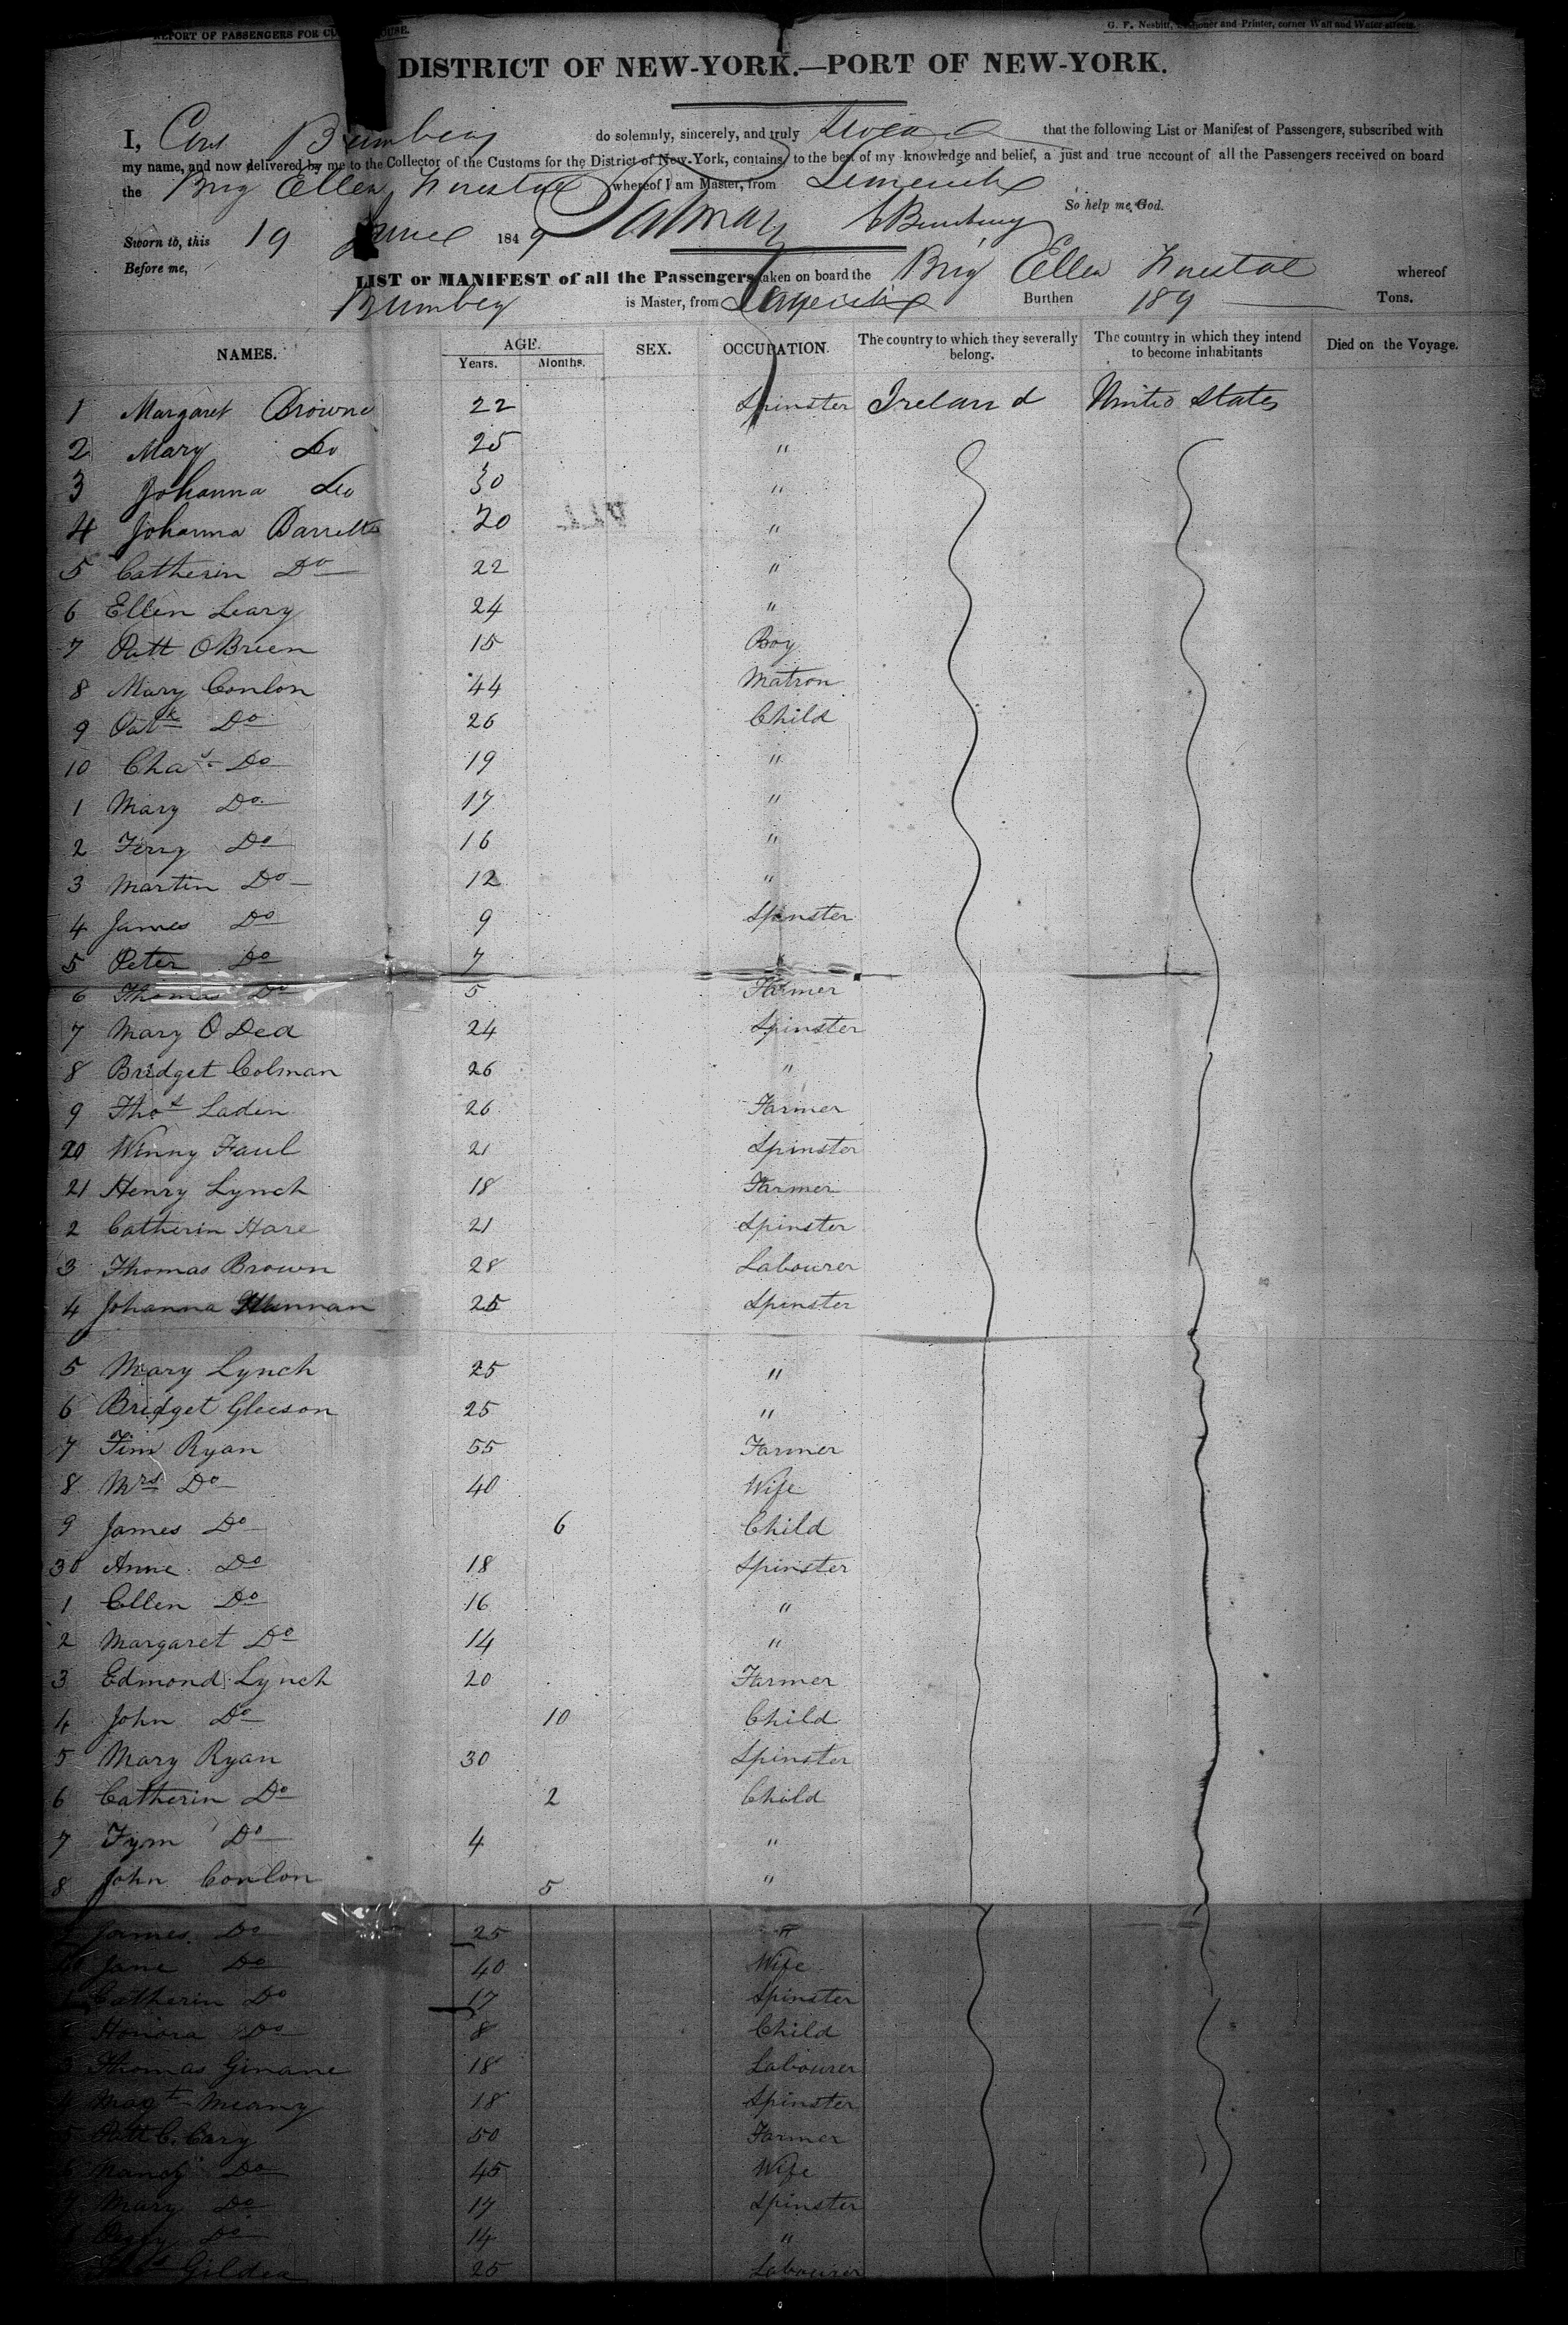 REPORT OF PASSENGERS FOR CUSTOM HOUSE.
G. F. Nesbitt, Stationer and Printer, corner Wall and Water streets.
DISTRICT OF NEW-YORK.—PORT OF NEW-YORK.
I, do solemnly, sincerely, and truly that the following List or Manifest of Passengers, subscribed with
my name, and now delivered by me to the Collector of the Customs for the District of New-York, contains, to the best of my knowledge and belief, a just and true account of all the Passengers received on board
the Brig Ellen whereof I am Master, from Limerick
So help me God.
Sworn to, this 19 June 1849
Before me,
LIST or MANIFEST of all the Passengers taken on board the Brig Ellen whereof
is Master, from Burthen 189 Tons.
NAMES. AGE. SEX. OCCUPATION. The country to which they severally belong. The country in which they intend to become inhabitants Died on the Voyage.
Years. Months.
1 Margaret Browne 22 Spinster Ireland United States
2 Mary Do 25 "
3 Johanna Do 30 "
4 Johanna Barrett 20 "
5 Catherin Do 22 "
6 Ellen Leary 24 "
7 Patt OBrien 15 Boy
8 Mary Conlon 44 Matron
9 Patk Do 26 Child
10 Chas Do 19 "
1 Mary Do 17 "
2 Terry Do 16 "
3 Martin Do 12 "
4 James Do 9 Spinster
5 Peter Do 7
6 Thomas Do 5 Farmer
7 Mary O Dea 24 Spinster
8 Bridget Colman 26 "
9 Thos Laden 26 Farmer
20 Winny Faul 21 Spinster
21 Henry Lynch 18 Farmer
2 Catherin Hare 21 Spinster
3 Thomas Brown 28 Labourer
4 Johanna 25 Spinster
5 Mary Lynch 25 "
6 Bridget Gleeson 25 "
7 Tim Ryan 55 Farmer
8 Mrs Do 40 Wife
9 James Do 6 Child
30 Anne Do 18 Spinster
1 Ellen Do 16 "
2 Margaret Do 14 "
3 Edmond Lynch 20 Farmer
4 John Do 10 Child
5 Mary Ryan 30 Spinster
6 Catherin Do 2 Child
7 Tym Do 4 "
8 John Conlon 5 "
James Do 25 "
Jane Do 40 Wife
Catherin Do 17 Spinster
Honora Do 8 Child
3 Thomas Ginane 18 Labourer
4 Magt Meany 18 Spinster
5 Patt 50 Farmer
Nancy Do 45 Wife
Mary Do 17 Spinster
Do 14 "
Gildea 25 Labourer